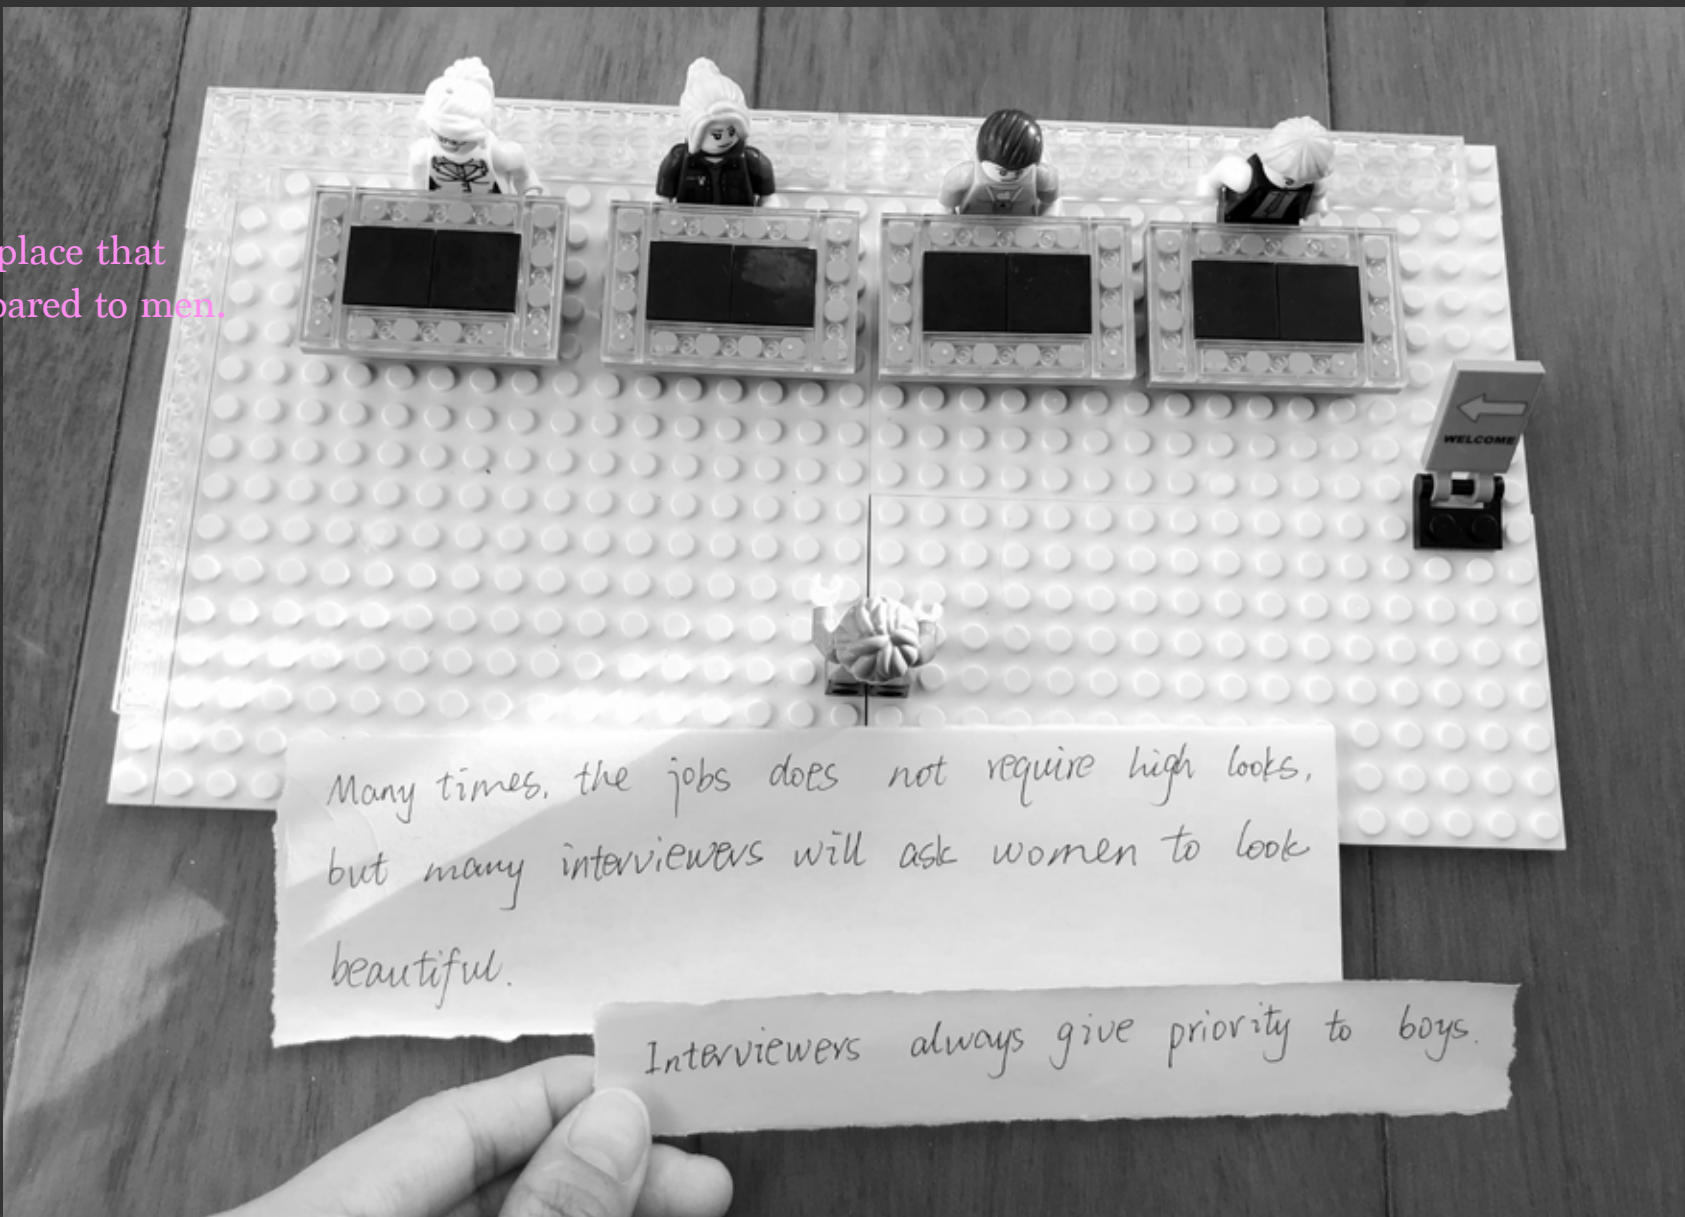 place that
to men.
WELCOME
Many times, the jobs does not require high looks,
but many interviewers will ask women to look
beautiful.
Interviewers always give priority to boys.